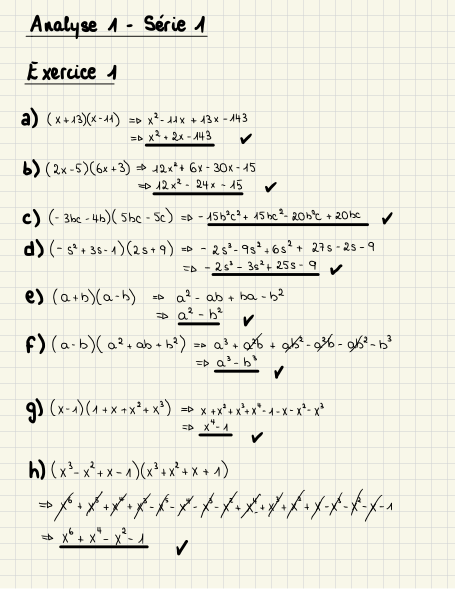 Analyse 1 - Série 1
Exercice 1
a) (x+13)(x-11) => x² - 11x + 13x - 143
=> x² + 2x - 143 ✓
b) (2x-5)(6x+3) => 12x² + 6x - 30x - 15
=> 12x² - 24x - 15 ✓
c) (-3bc - 4b)(5bc - 5c) => -15b²c² + 15bc² - 20b²c + 20bc ✓
d) (-s² + 3s - 1)(2s + 9) => -2s³ - 9s² + 6s² + 27s - 2s - 9
=> -2s³ - 3s² + 25s - 9 ✓
e) (a+b)(a-b) => a² - ab + ba - b²
=> a² - b² ✓
f) (a-b)(a² + ab + b²) => a³ + a²b + ab² - a²b - ab² - b³
=> a³ - b³ ✓
g) (x-1)(1 + x + x² + x³) => x + x² + x³ + x⁴ - 1 - x - x² - x³
=> x⁴ - 1 ✓
h) (x³ - x² + x - 1)(x³ + x² + x + 1)
=> x⁶ + x⁵ + x⁴ + x³ - x⁵ - x⁴ - x³ - x² + x⁴ + x³ + x² + x - x³ - x² - x - 1
=> x⁶ + x⁴ - x² - 1 ✓